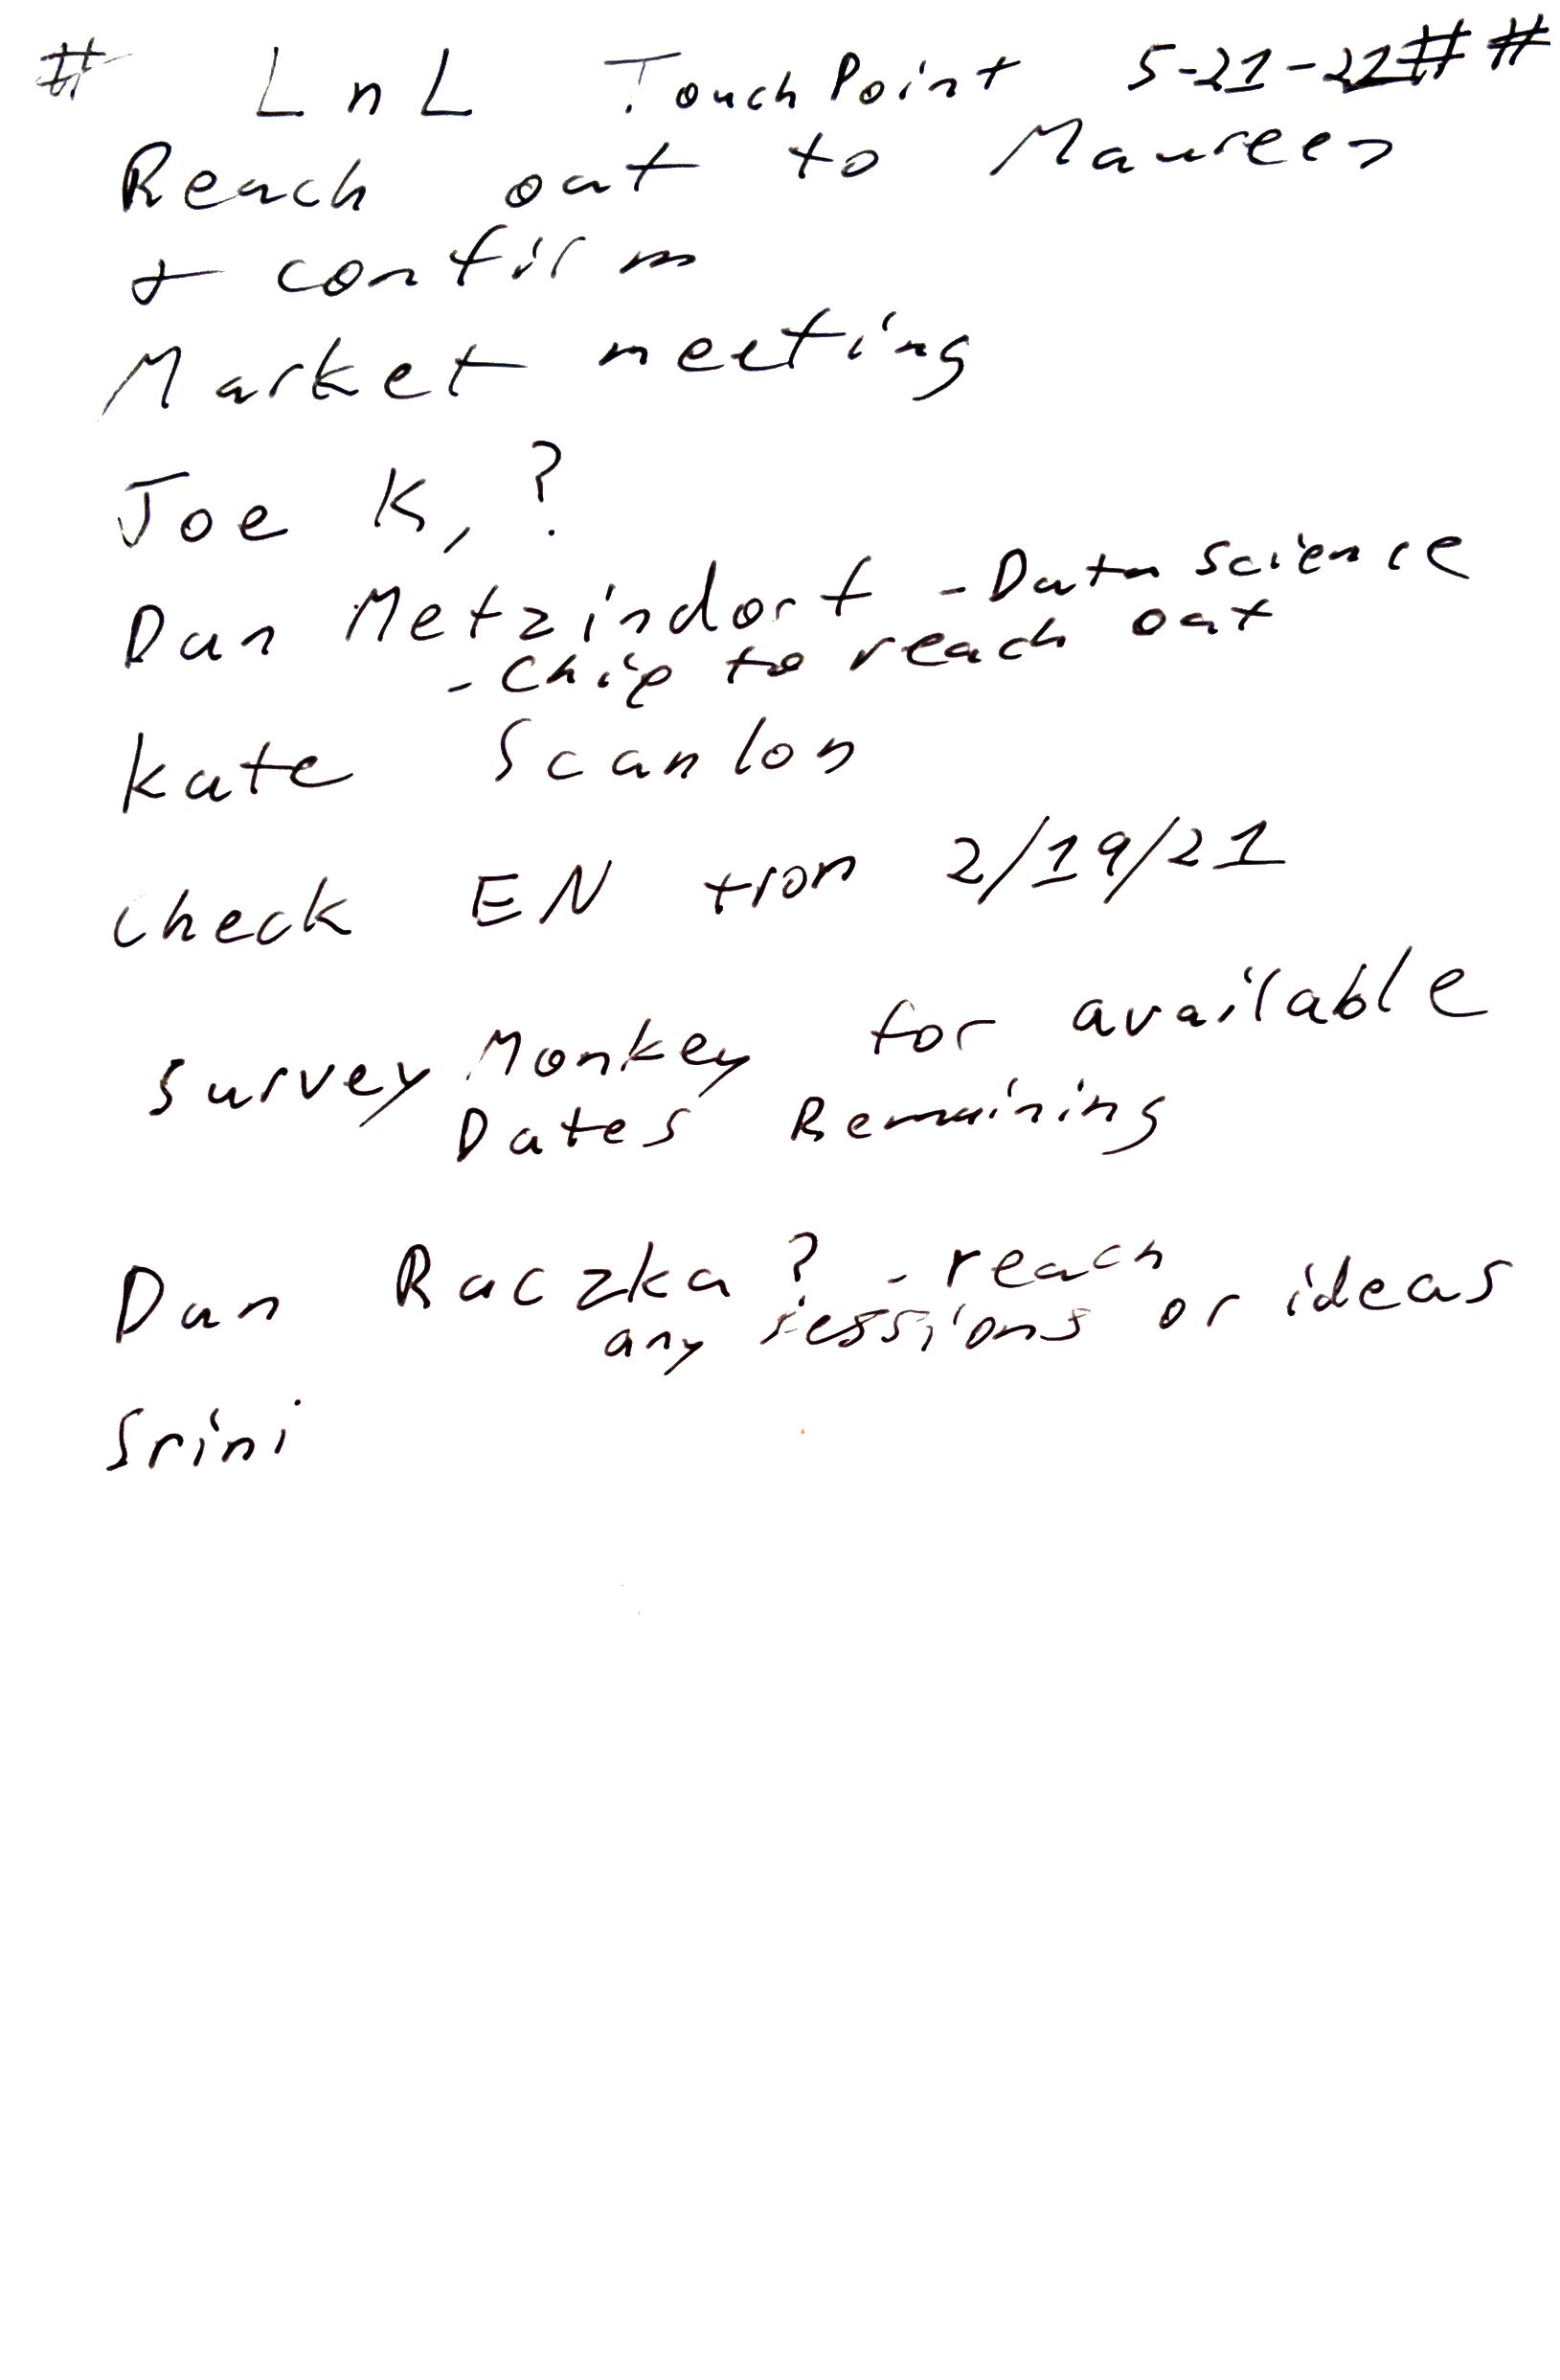 # LnL TouchPoint 5-21-22 # #
Reach out to Maureen
+ confirm
Market meeting
Joe K, ?
Dan Metzindorf - Data science
- Chip to reach out
Kate Scanlon
check EN from 2/19/21
survey Monkey for available
Dates Remaining
Dan Raczka ? - reach
any sessions or ideas
Srini